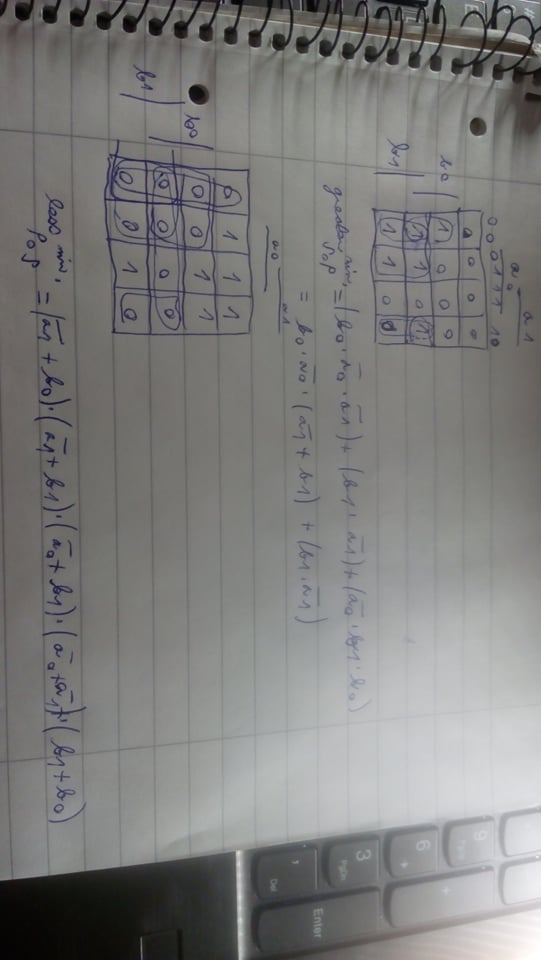 a1
a0
00 01 11 10
0 0 0 0
b0 1 0 0 0
1 1 0 1
b1 1 1 0 0
greater min. SoP = (b0 · a̅0̅ · a̅1̅) + (b1 · a̅1̅) + (a̅0̅ · b1 · b0)
= b0 · a̅0̅ · (a̅1̅ + b1) + (b1 · a̅1̅)
a0 a1
0 1 1 1
b0 0 0 1 1
b1 0 0 0 0
0 0 1 0
less min. PoS = (a̅1̅ + b0) · (a̅1̅ + b1) · (a̅0̅ + b1) · (a̅0̅ + a̅1̅) · (b1 + b0)
9
PgUp
+
6
3
PgDn
Enter
Del